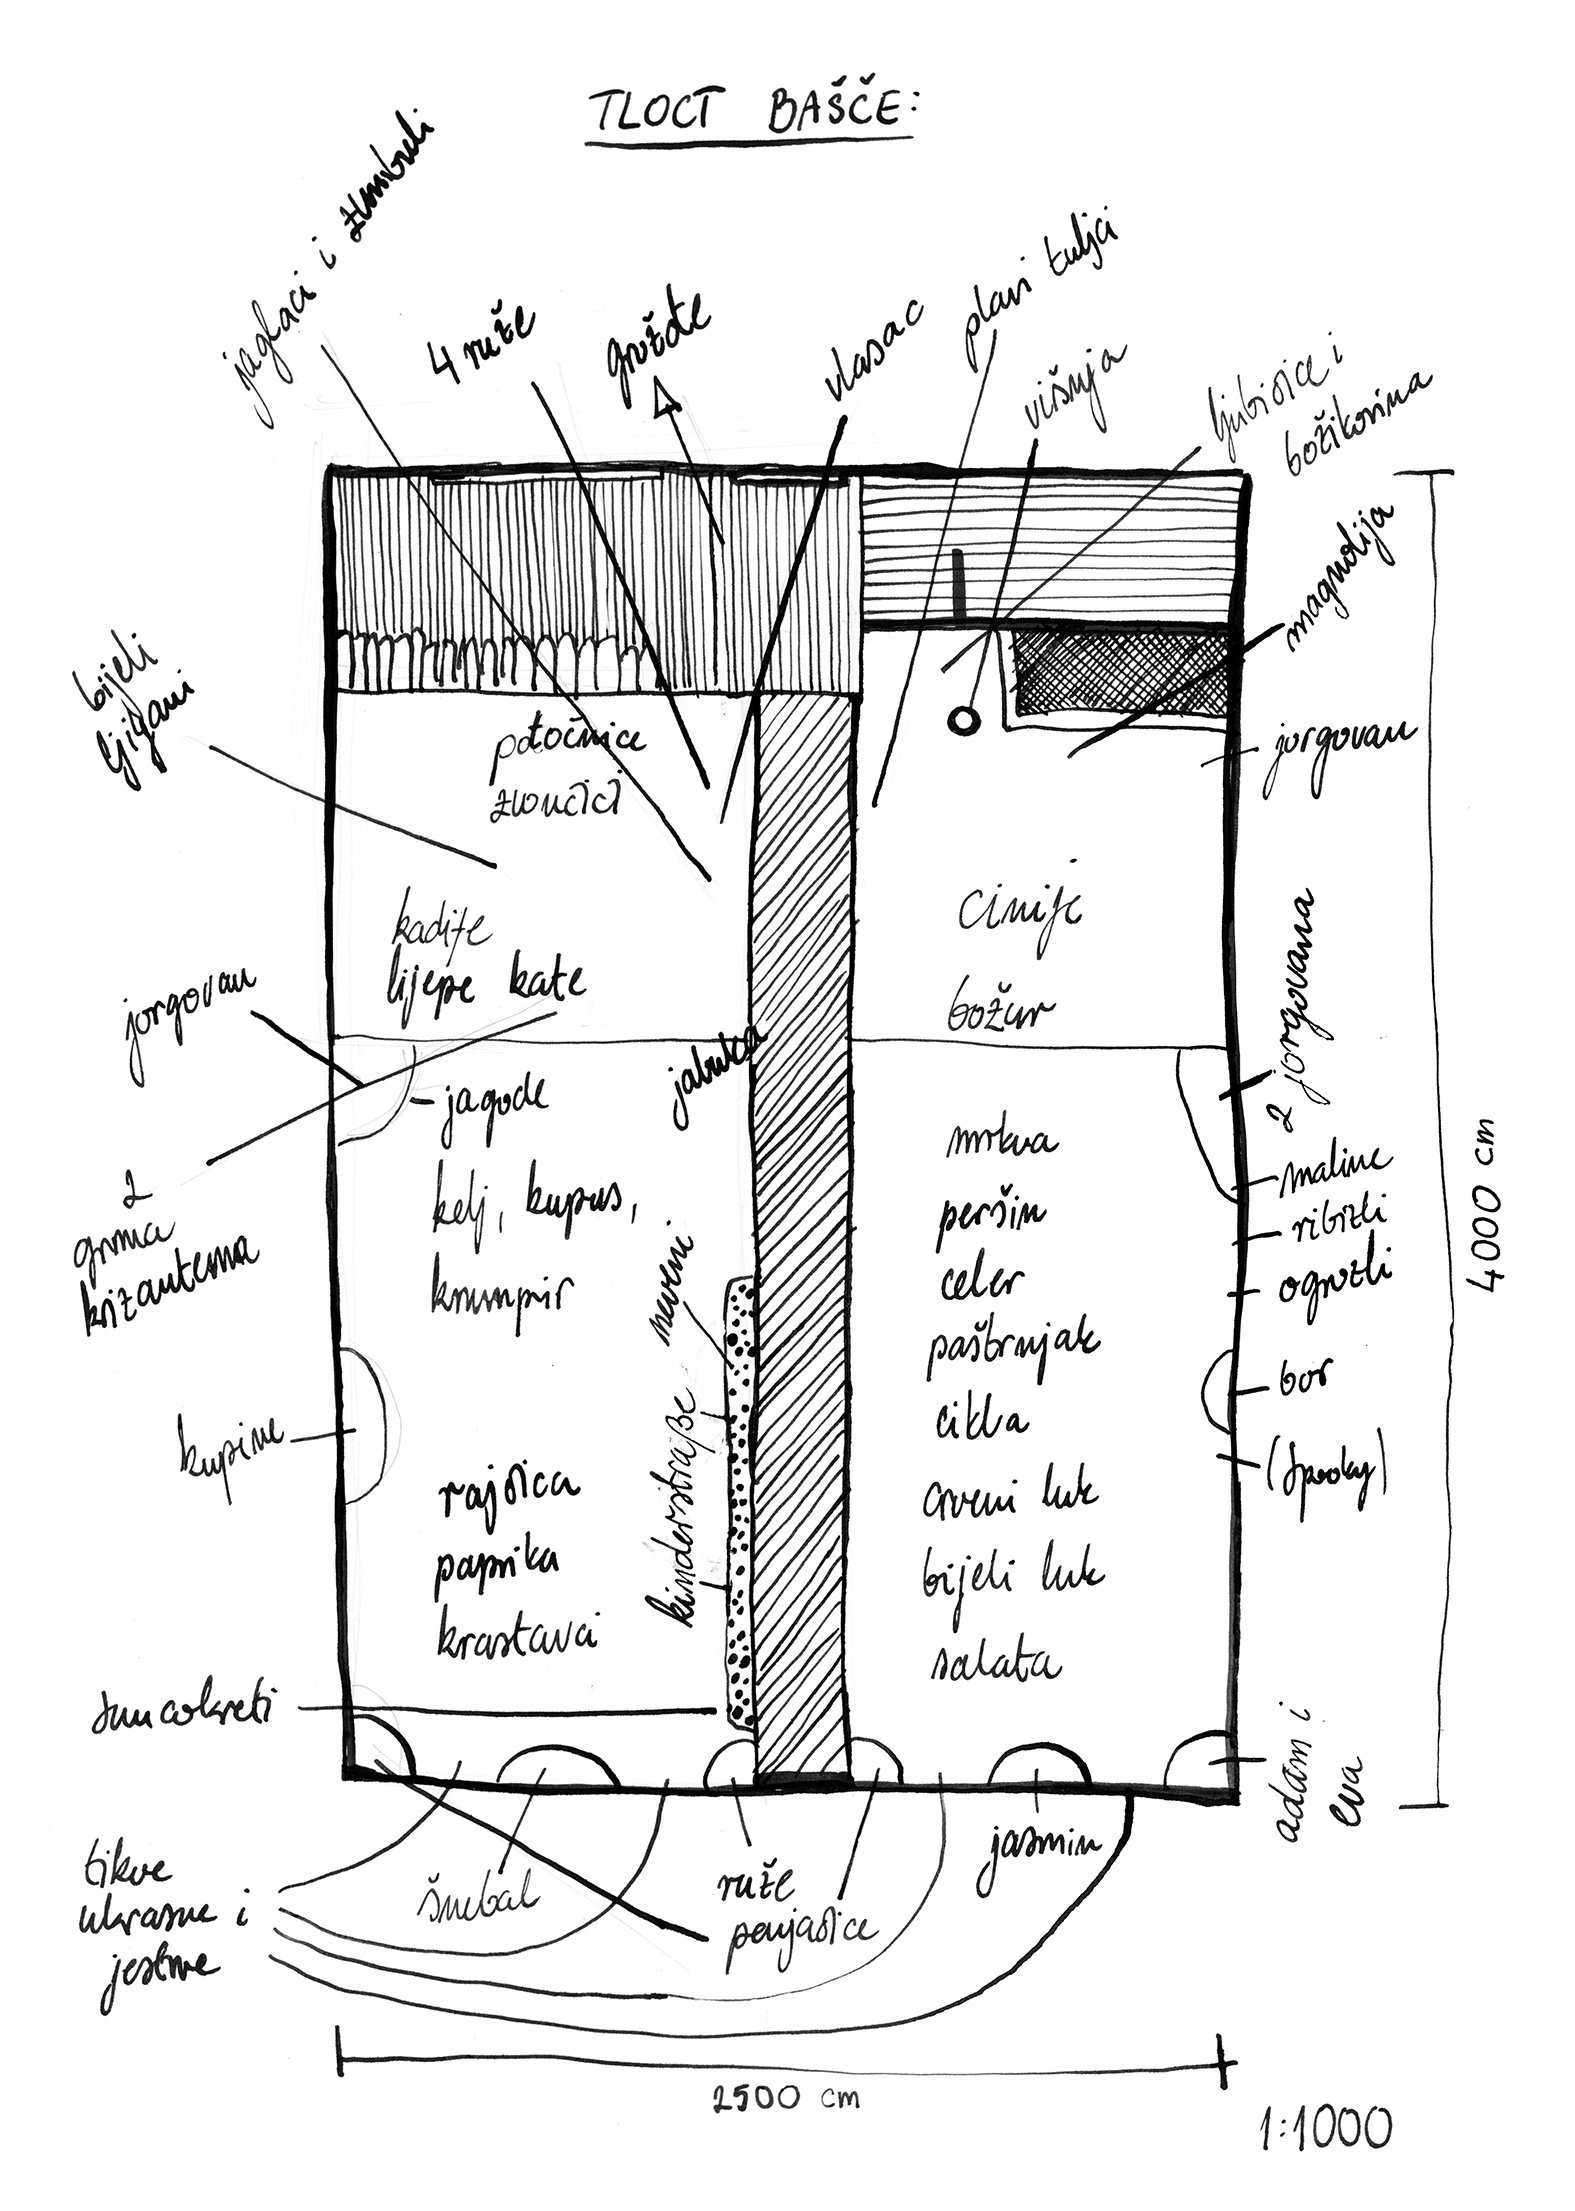 TLOCT BAŠČE:
jaglaci i zumbuli
4 ruže
grožđe
vlasac
plavi tuljci
višnja
ljubičice i
božikovina
magnolija
bijeli
ljiljani
potočnice
zvončići
jorgovan
kadife
lijepe kate
cinije
božur
jorgovan
2 jorgovana
jabuka
jagode
2
grma
krizantema
kelj, kupus,
krumpir
neveni
kinderstraße
mrkva
peršin
celer
paštrnjak
cikla
crveni luk
bijeli luk
salata
maline
ribizli
ogrozli
bor
(Spooky)
4000 cm
kupine
rajčica
paprika
krastavci
suncokreti
adam i
eva
tikve
ukrasne i
jestive
šnebal
ruže
penjačice
jasmin
2500 cm
1:1000